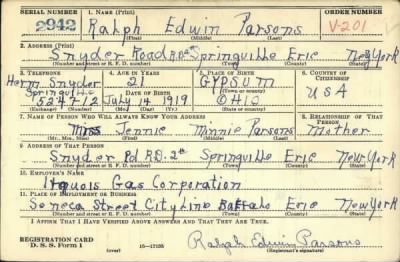 SERIAL NUMBER 1. NAME (Print) ORDER NUMBER
2942 Ralph Edwin Parsons V-201
2. ADDRESS (Print)
Snyder Road Springville Erie New York
(Number and street or R. F. D. number) (Town) (County) (State)
3. TELEPHONE 4. AGE IN YEARS 5. PLACE OF BIRTH 6. COUNTRY OF CITIZENSHIP
Herm Snyder 21 GYPSUM
Springville DATE OF BIRTH (Town or county) USA
524F12 July 14 1919 OHIO
(Mo.) (Day) (Yr.) (State or country)
7. NAME OF PERSON WHO WILL ALWAYS KNOW YOUR ADDRESS 8. RELATIONSHIP OF THAT PERSON
Miss Jennie Minnie Parsons Mother
(Mr., Mrs., Miss) (First) (Middle) (Last)
9. ADDRESS OF THAT PERSON
Snyder Rd R.D. 2 Springville Erie New York
(Number and street or R. F. D. number) (Town) (County) (State)
10. EMPLOYER'S NAME
Iroquois Gas Corporation
11. PLACE OF EMPLOYMENT OR BUSINESS
Seneca Street City Line Buffalo Erie New York
(Number and street or R. F. D. number) (Town) (County) (State)
I AFFIRM THAT I HAVE VERIFIED ABOVE ANSWERS AND THAT THEY ARE TRUE.
REGISTRATION CARD
D. S. S. FORM 1 (over) 16-17105 Ralph Edwin Parsons
(Registrant's signature)